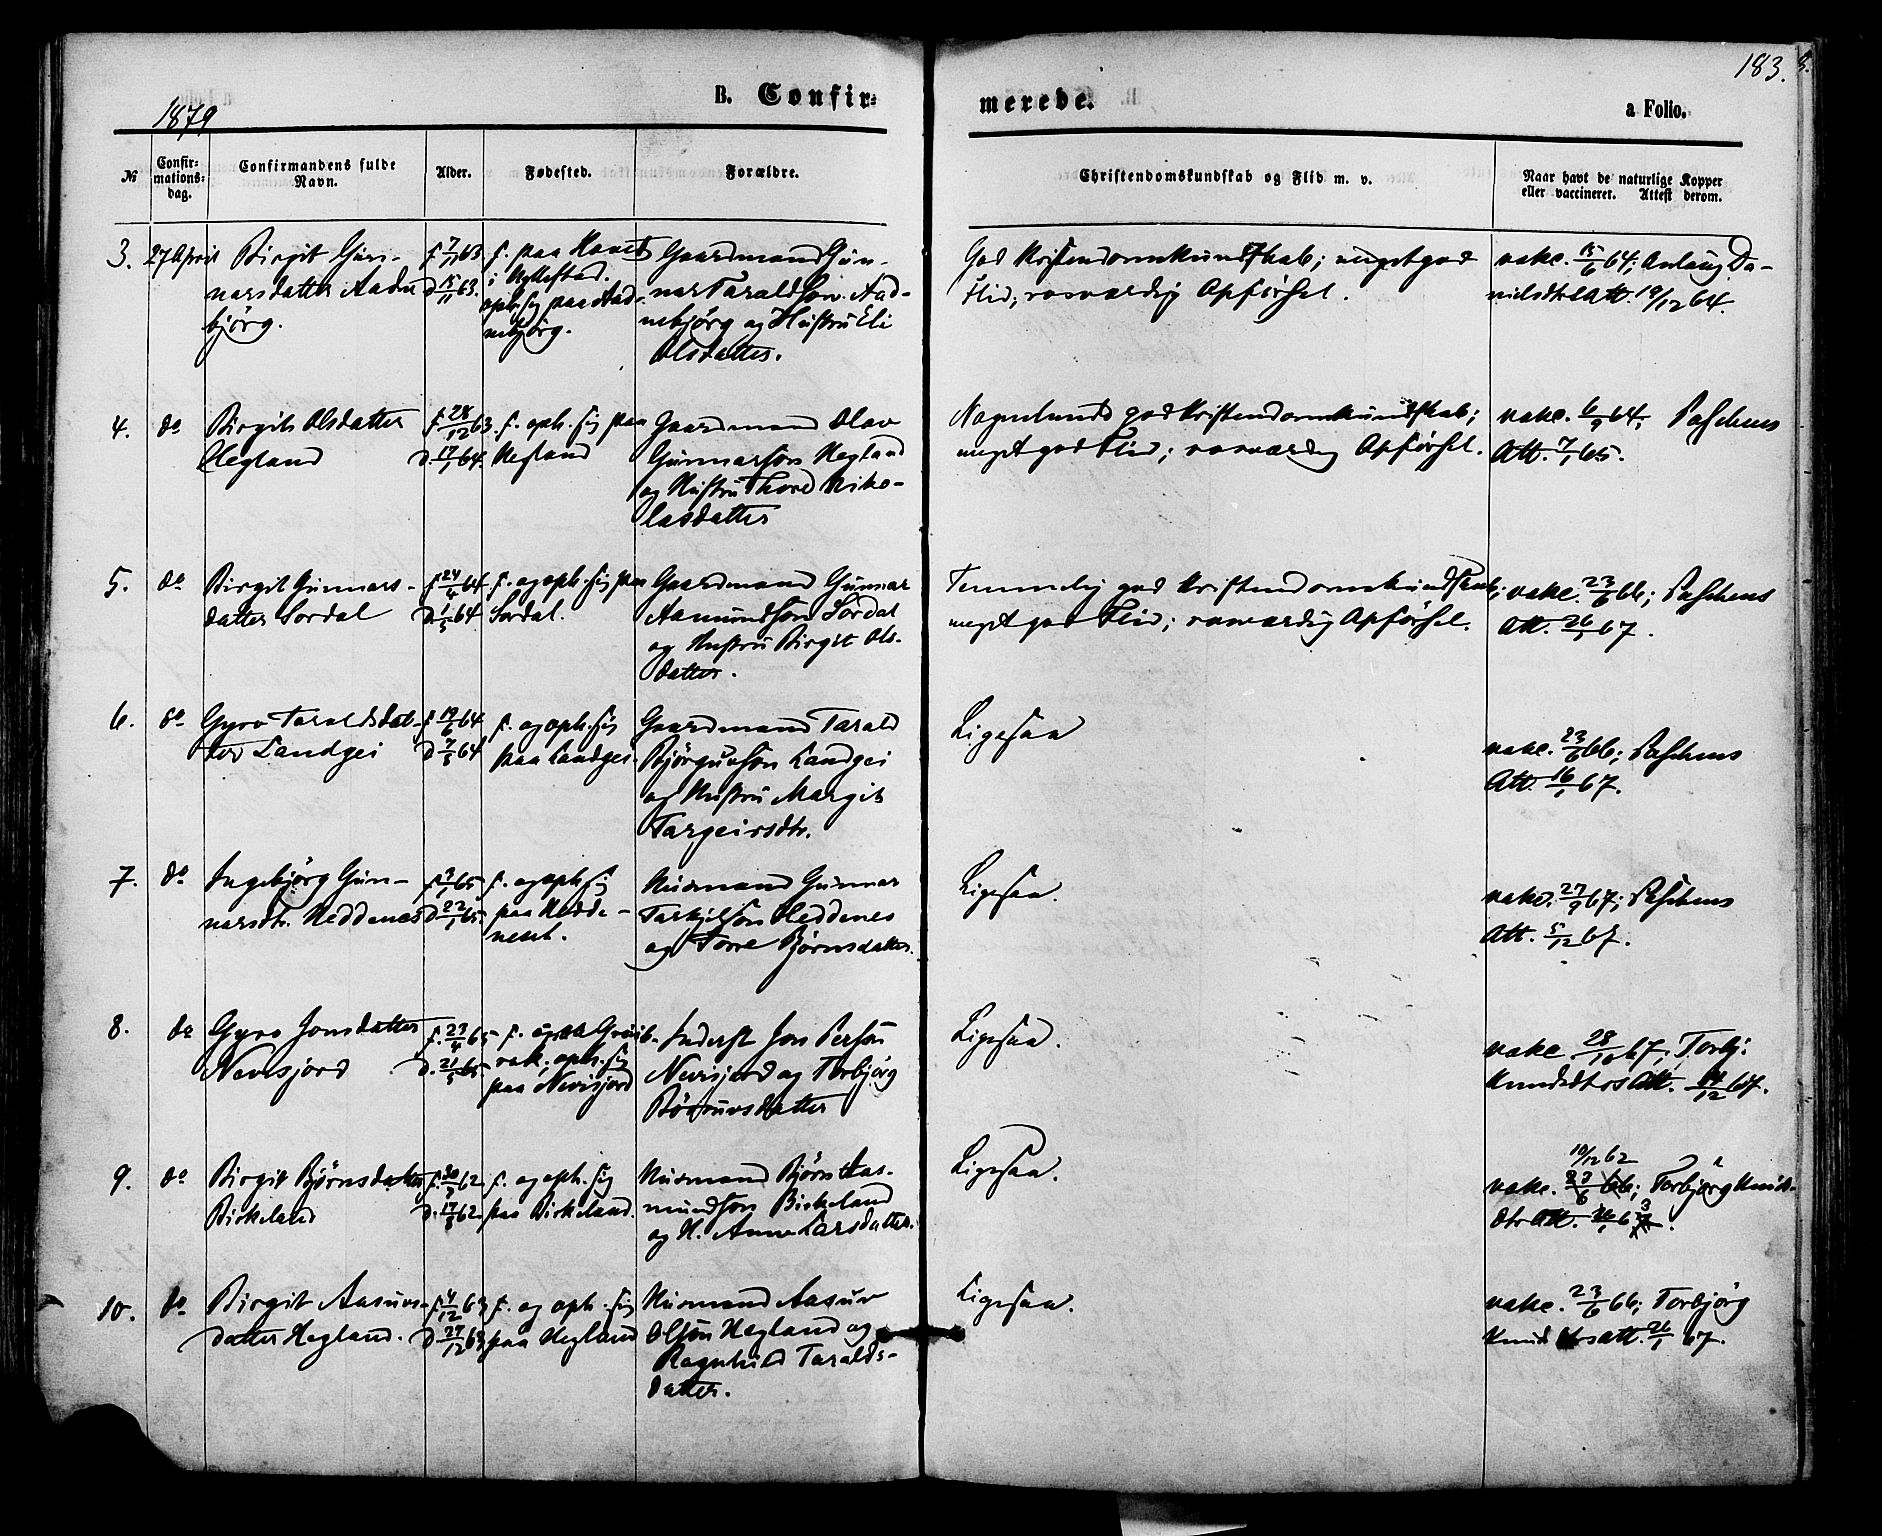 183.
1879
B. Confir=
merede.
a Folio.
№
Confir=
mations=
dag.
Confirmandens fulde
Navn.
Alder.
Fødested.
Forældre.
Christendomskundskab og Flid m. v.
Naar havt de naturlige Kopper
eller vaccineret. Attest derom.
3. 27 April
Birgit Gun-
narsdatter Aadne
bjørg.
f. 7/1 63
d. 15/11 63.
f. paa
i Hyllestad.
oph. sig paa Aad-
nebjørg.
Gaardmand Gun-
nar Taraldson Aad-
nebjørg og Hustru Eli
Olsdatter.
God Kristendomskundskab; meget god
Flid; rosværdig Opførsel.
vakc. 15/6 64; Anlaug Da-
nielsdtrs Att. 19/12 64.
4. do
Birgit Olsdatter
Hegland
f. 28/12 63.
d. 17/1 64.
f. oph. sig paa
Hegland
Gaardmand Olav
Gunnarson Hegland
og Hustru Thore Niko-
lasdatter
Nogenlunde god Kristendomskundskab;
meget god Flid; rosværdig Opførsel.
vakc. 6/9 64; Paschens
Att. 7/1 65.
5. do
Birgit Gunnars-
datter Sordal
f. 24/4 64
d. 1/5 64
f. og oph. sig paa
Sordal.
Gaardmand Gunnar
Aamundson Sordal
og Hustru Birgit Ols-
datter.
Temmelig god Kristendomskundskab;
meget god Flid; rosværdig Opførsel.
vakc. 23/6 66; Paschens
Att. 26/1 67.
6. do
Gyro Taraldsdat-
ter Landgei
f. 19/6 64
d. 7/8 64
f. og oph. sig
paa Landgei.
Gaardmand Tarald
Bjørguvson Landgei
og Hustru Margit
Targeirsdtr.
Ligesaa
vakc. 23/6 66; Paschens
Att. 16/1 67.
7. do
Ingebjørg Gun-
narsdtr. Heddenes
f. 9/1 65
d. 22/1 65.
f. og oph. sig
paa Hedde-
neset.
Husmand Gunnar
Tarkjelson Heddenes
og Torre Bjørnsdatter.
Ligesaa.
vakc. 27/9 67; Paschens
Att. 5/12 67.
8. do
Gyro Jonsdatter
Nevisjord
f. 23/4 65
d. 21/5 65.
rak; oph. sig
paa Nevisjord
Inderst Jon Person
Nevisjord og Torbjørg
Ligesaa.
vakc 28/10 67; Torbj.
Knudsdtrs Att. 14/12 67.
9. do
Birgit Bjørnsdatter
Birkeland
f. 30/7 62
d. 17/8 62
f. og oph. sig
paa Birkeland.
Husmand Bjørn Aas-
mundson Birkeland
og H. Anne Larsdatter.
Ligesaa.
19/12 62
vakc. 23/6 66; Torbjørg Knuds-
dtr Att. 26/1 63.
10. do
Birgit Aasuvs-
datter Hegland.
f. 4/12 63
d. 27/12 63
f. og oph. sig
paa Hegland
Husmand Aasuv
Olson Hegland og
Ragnhild Taralds-
datter.
Ligesaa.
vakc. 23/6 66; Torbjørg
Knudsdtrs att. 26/1 67.